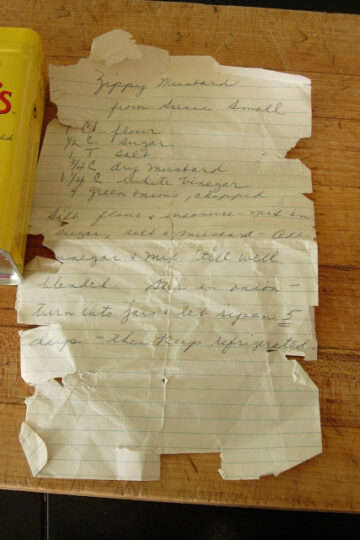 's
Zippy Mustard
from Susie Small
1 C flour
1/2 C sugar
1 T salt
3/4 C dry mustard
1 1/4 C white vinegar
4 green onions, chopped
Sift flour & measure - mix in
sugar, salt & mustard - Add
vinegar & mix 'till well
blended. Stir in onion -
turn into jars & let ripen 5
days - then keep refrigerated